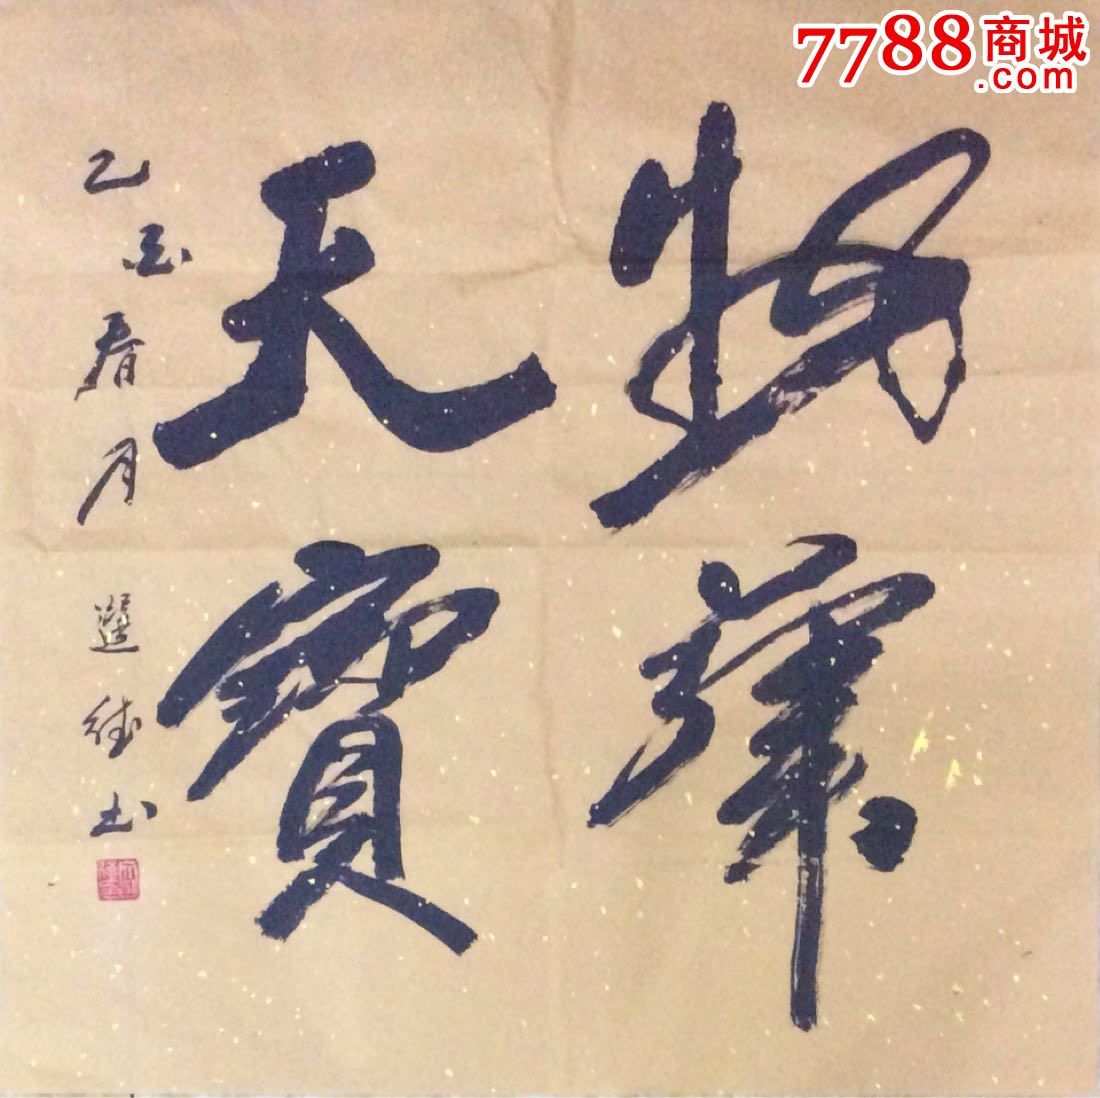 7788商城
.com
物華
天寶
乙酉春月 選德書